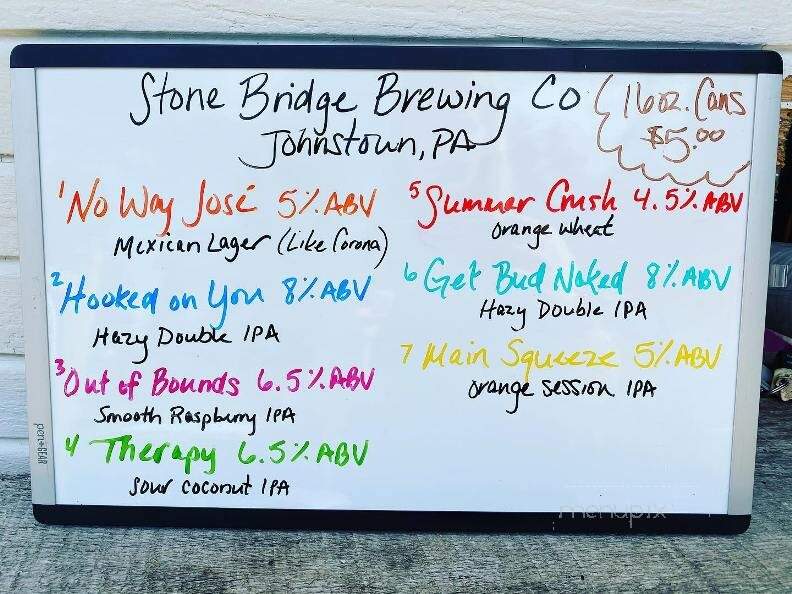 Stone Bridge Brewing Co
Johnstown, PA
16oz. Cans
$5.00
1 No Way José 5% ABV
Mexican Lager (Like Corona)
2 Hooked on You 8% ABV
Hazy Double IPA
3 Out of Bounds 6.5% ABV
Smooth Raspberry IPA
4 Therapy 6.5% ABV
Sour Coconut IPA
5 Summer Crush 4.5% ABV
Orange Wheat
6 Get Bud Naked 8% ABV
Hazy Double IPA
7 Main Squeeze 5% ABV
Orange Session IPA
pen+GEAR
menupix